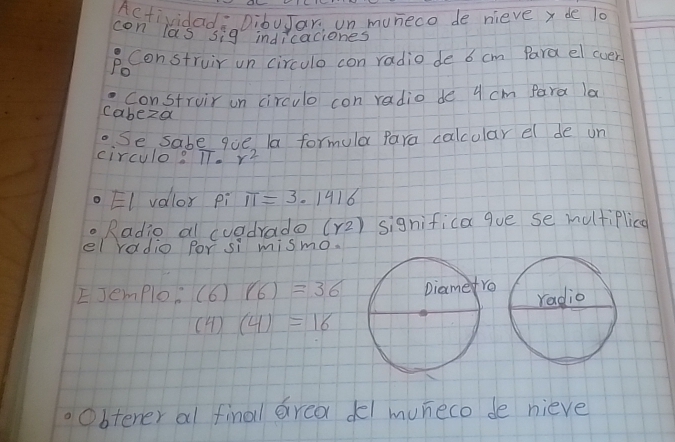 de Diciembre
Actividad: Dibujar un muñeco de nieve y de lo
con las sig indicaciones
• Construir un circulo con radio de 6 cm Para el cuer
Po
• Construir un circulo con radio de 4 cm Para la
cabeza
• Se sabe que la formula Para calcular el de un
circulo: π. r²
• El valor Pi π = 3.1416
• Radio al cuadrado (r2) significa que se multiplica
el radio Por si mismo.
Ejemplo: (6) (6) = 36
(4) (4) = 16
Diametro
radio
• Obtener al final área del muñeco de nieve